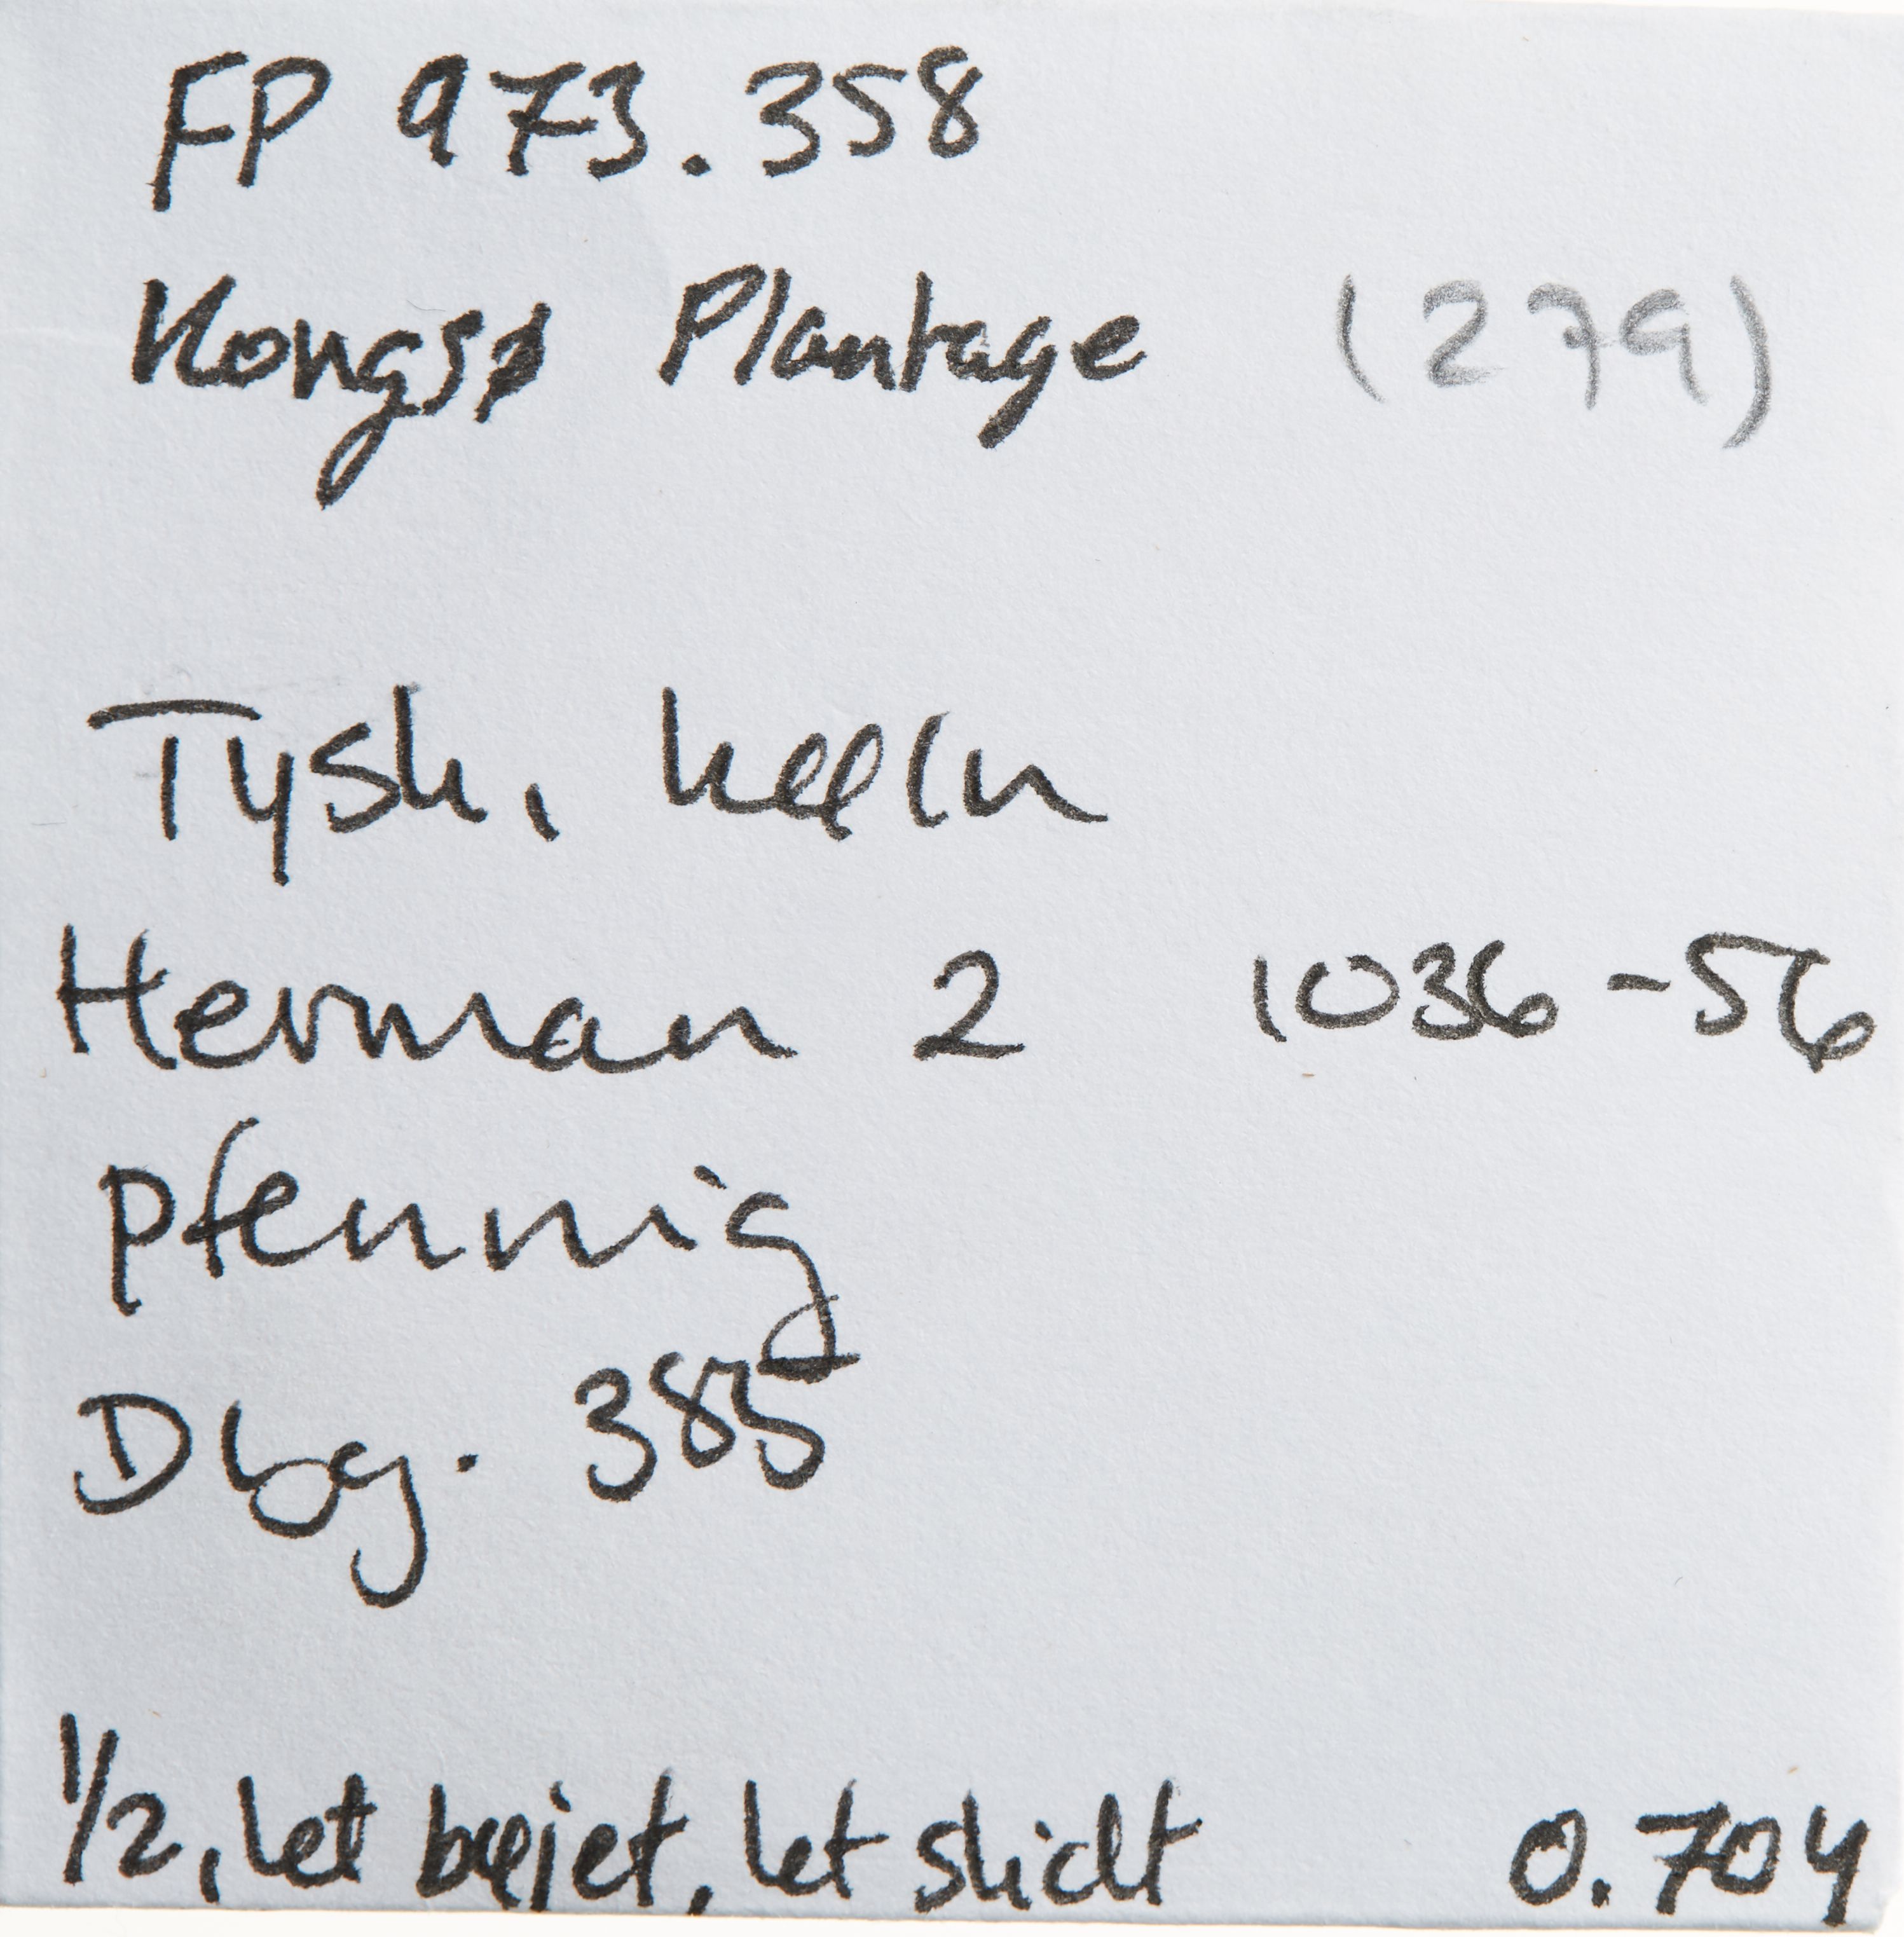 FP 973.358
Kongsø Plantage (279)
Tysk, Kølln
Herman 2 1036-56
Pfennig
Dbg. 385
1/2, let bøjet, let slidt 0.704